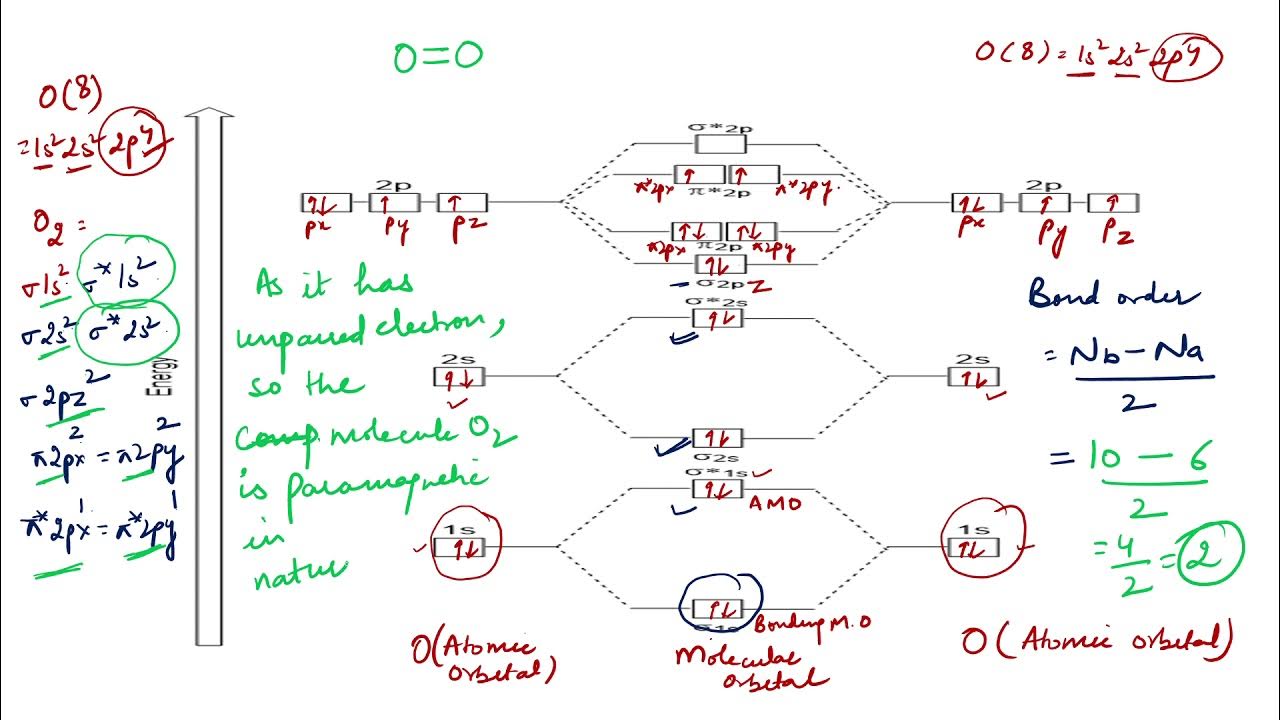 O=O
O(8) = 1s² 2s² 2p⁴
O(8)
=1s² 2s² 2p⁴
O₂ =
σ1s² σ*1s²
σ2s² σ*2s²
σ2pz²
π2px² = π2py²
π*2px¹ = π*2py¹
Energy
As it has
unpaired electron,
so the
comp. molecule O₂
is paramagnetic
in
nature
2p
↑↓ ↑ ↑
px py pz
2s
↑↓
1s
↑↓
O(Atomic
orbetal)
σ*2p
↑ ↑
π*2px π*2p π*2py
↑↓ ↑↓
π2px π2p π2py
↑↓
σ2p z
σ*2s
↑↓
↑↓
σ2s
σ*1s
↑↓ AMO
↑↓
σ1s Bonding M.O
Molecular
orbetal
2p
↑↓ ↑ ↑
px py pz
2s
↑↓
1s
↑↓
O (Atomic orbetal)
Bond order
= Nb - Na
2
= 10 - 6
2
= 4 = 2
2